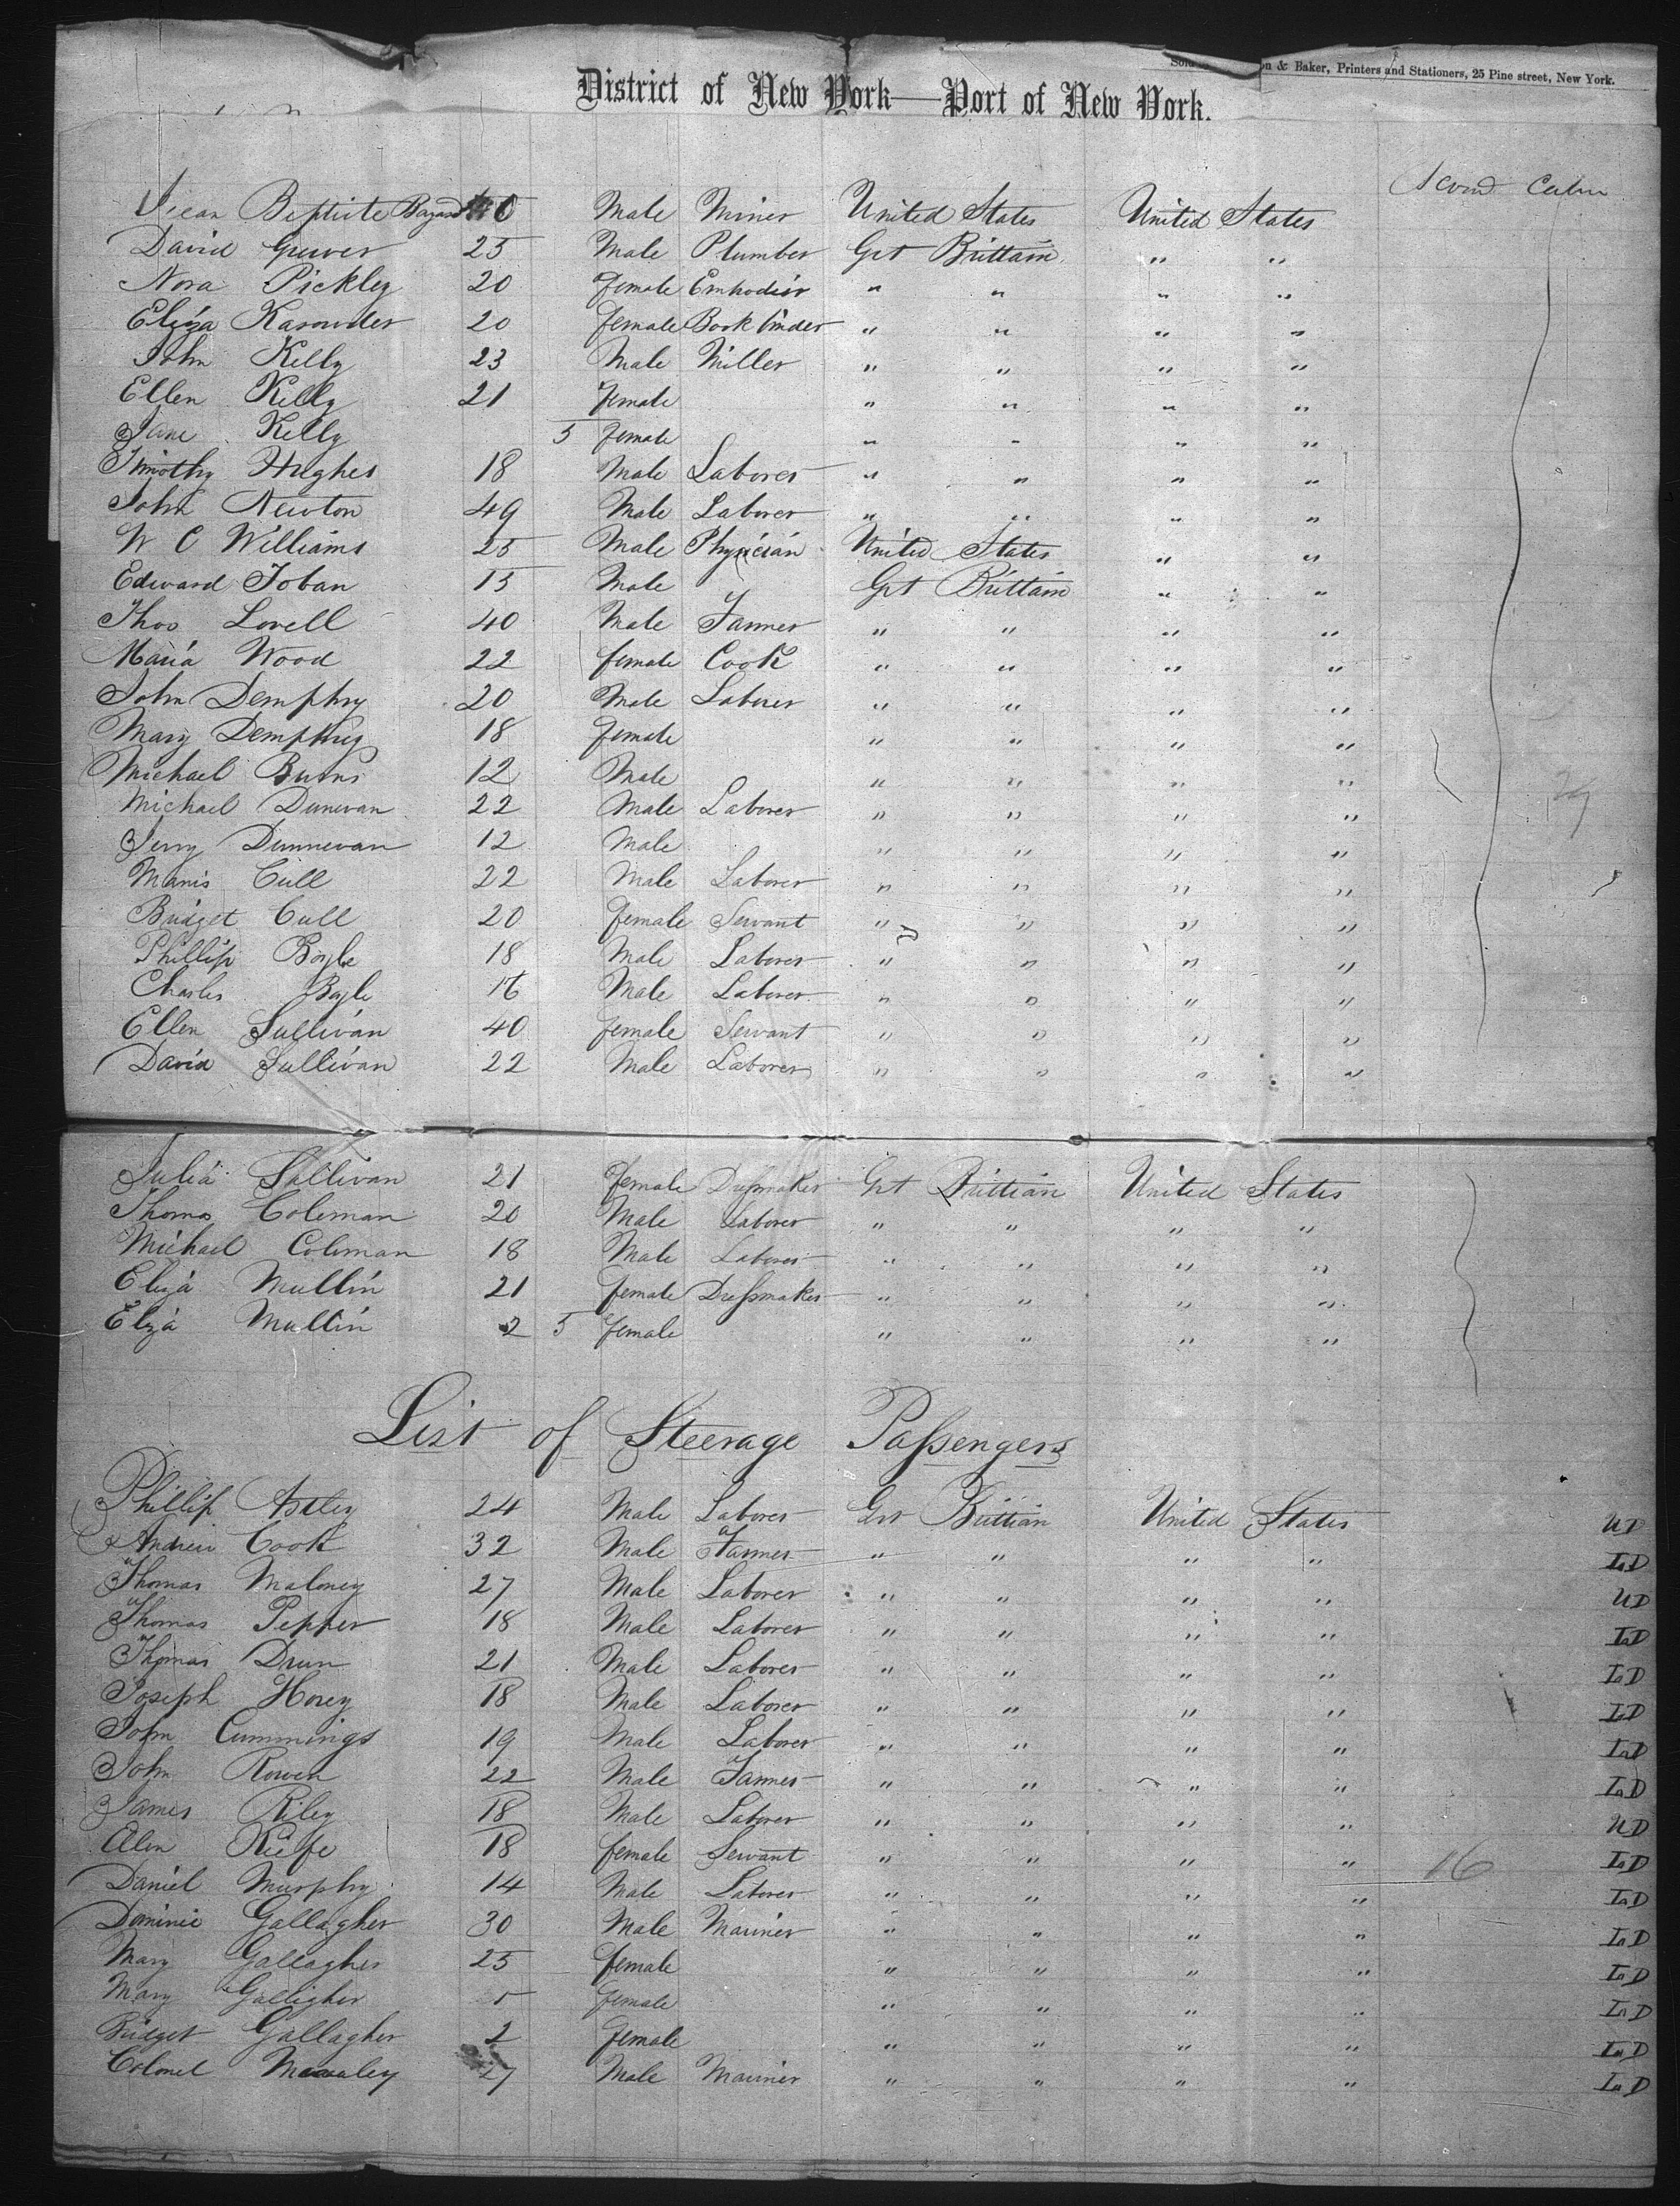 & Baker, Printers and Stationers, 25 Pine street, New York.
District of New York—Port of New York.
Second Cabin
Baptiste 0 Male Miner United States United States
David 25 Male Plumber Grt Brittain " "
Nora Pickley 20 female " " " "
Eliza 20 female Book binder " " " "
John Kelly 23 Male Miller " " " "
Ellen Kelly 21 female " " " "
Jane Kelly 5 female " " " "
Timothy Hughes 18 Male Laborer " " " "
John Newton 49 Male Laborer " " " "
W C Williams 25 Male Physician United States " "
Edward Toban 15 Male Grt Brittain " "
Thos Lovell 40 Male Farmer " " " "
Maria Wood 22 female Cook " " " "
John Demphry 20 Male Laborer " " " "
Mary Demphry 18 female " " " "
Michael Burns 12 Male " " " "
Michael Dunevan 22 Male Laborer " " " "
Jerry Dunnevan 12 Male " " " "
Manis Cull 22 Male Laborer " " " "
Bridget Cull 20 female Servant " " " "
Phillip Boyle 18 Male Laborer " " " "
Charles Boyle 16 Male Laborer " " " "
Ellen Sullivan 40 female Servant " " " "
David Sullivan 22 Male Laborer " " " "
29
Julia Sullivan 21 female Dressmaker Grt Brittian United States
Thomas Coleman 20 Male Laborer " " " "
Michael Coleman 18 Male Laborer " " " "
Eliza Mullin 21 female Dressmaker " " " "
Eliza Mullin 2 5 female " " " "
List of Steerage Passengers
Phillip Astley 24 Male Laborer Grt Brittian United States UD
Andrew Cook 32 Male Farmer " " " " LD
Thomas Maloney 27 Male Laborer " " " " UD
Thomas Pepper 18 Male Laborer " " " " LD
Thomas Drum 21 Male Laborer " " " " LD
Joseph Horey 18 Male Laborer " " " " LD
John Cummings 19 Male Laborer " " " " LD
John Rowen 22 Male Farmer " " " " LD
James Riley 18 Male Laborer " " " " UD
Ellen Kiefe 18 female Servant " " " " LD
16
Daniel Murphy 14 Male Laborer " " " " LD
Dominic Gallagher 30 Male Mariner " " " " LD
Mary Gallagher 25 female " " " " LD
Mary Galligher female " " " " LD
Bridget Gallagher 2 female " " " " LD
Colonel 27 Male Mariner " " " " LD